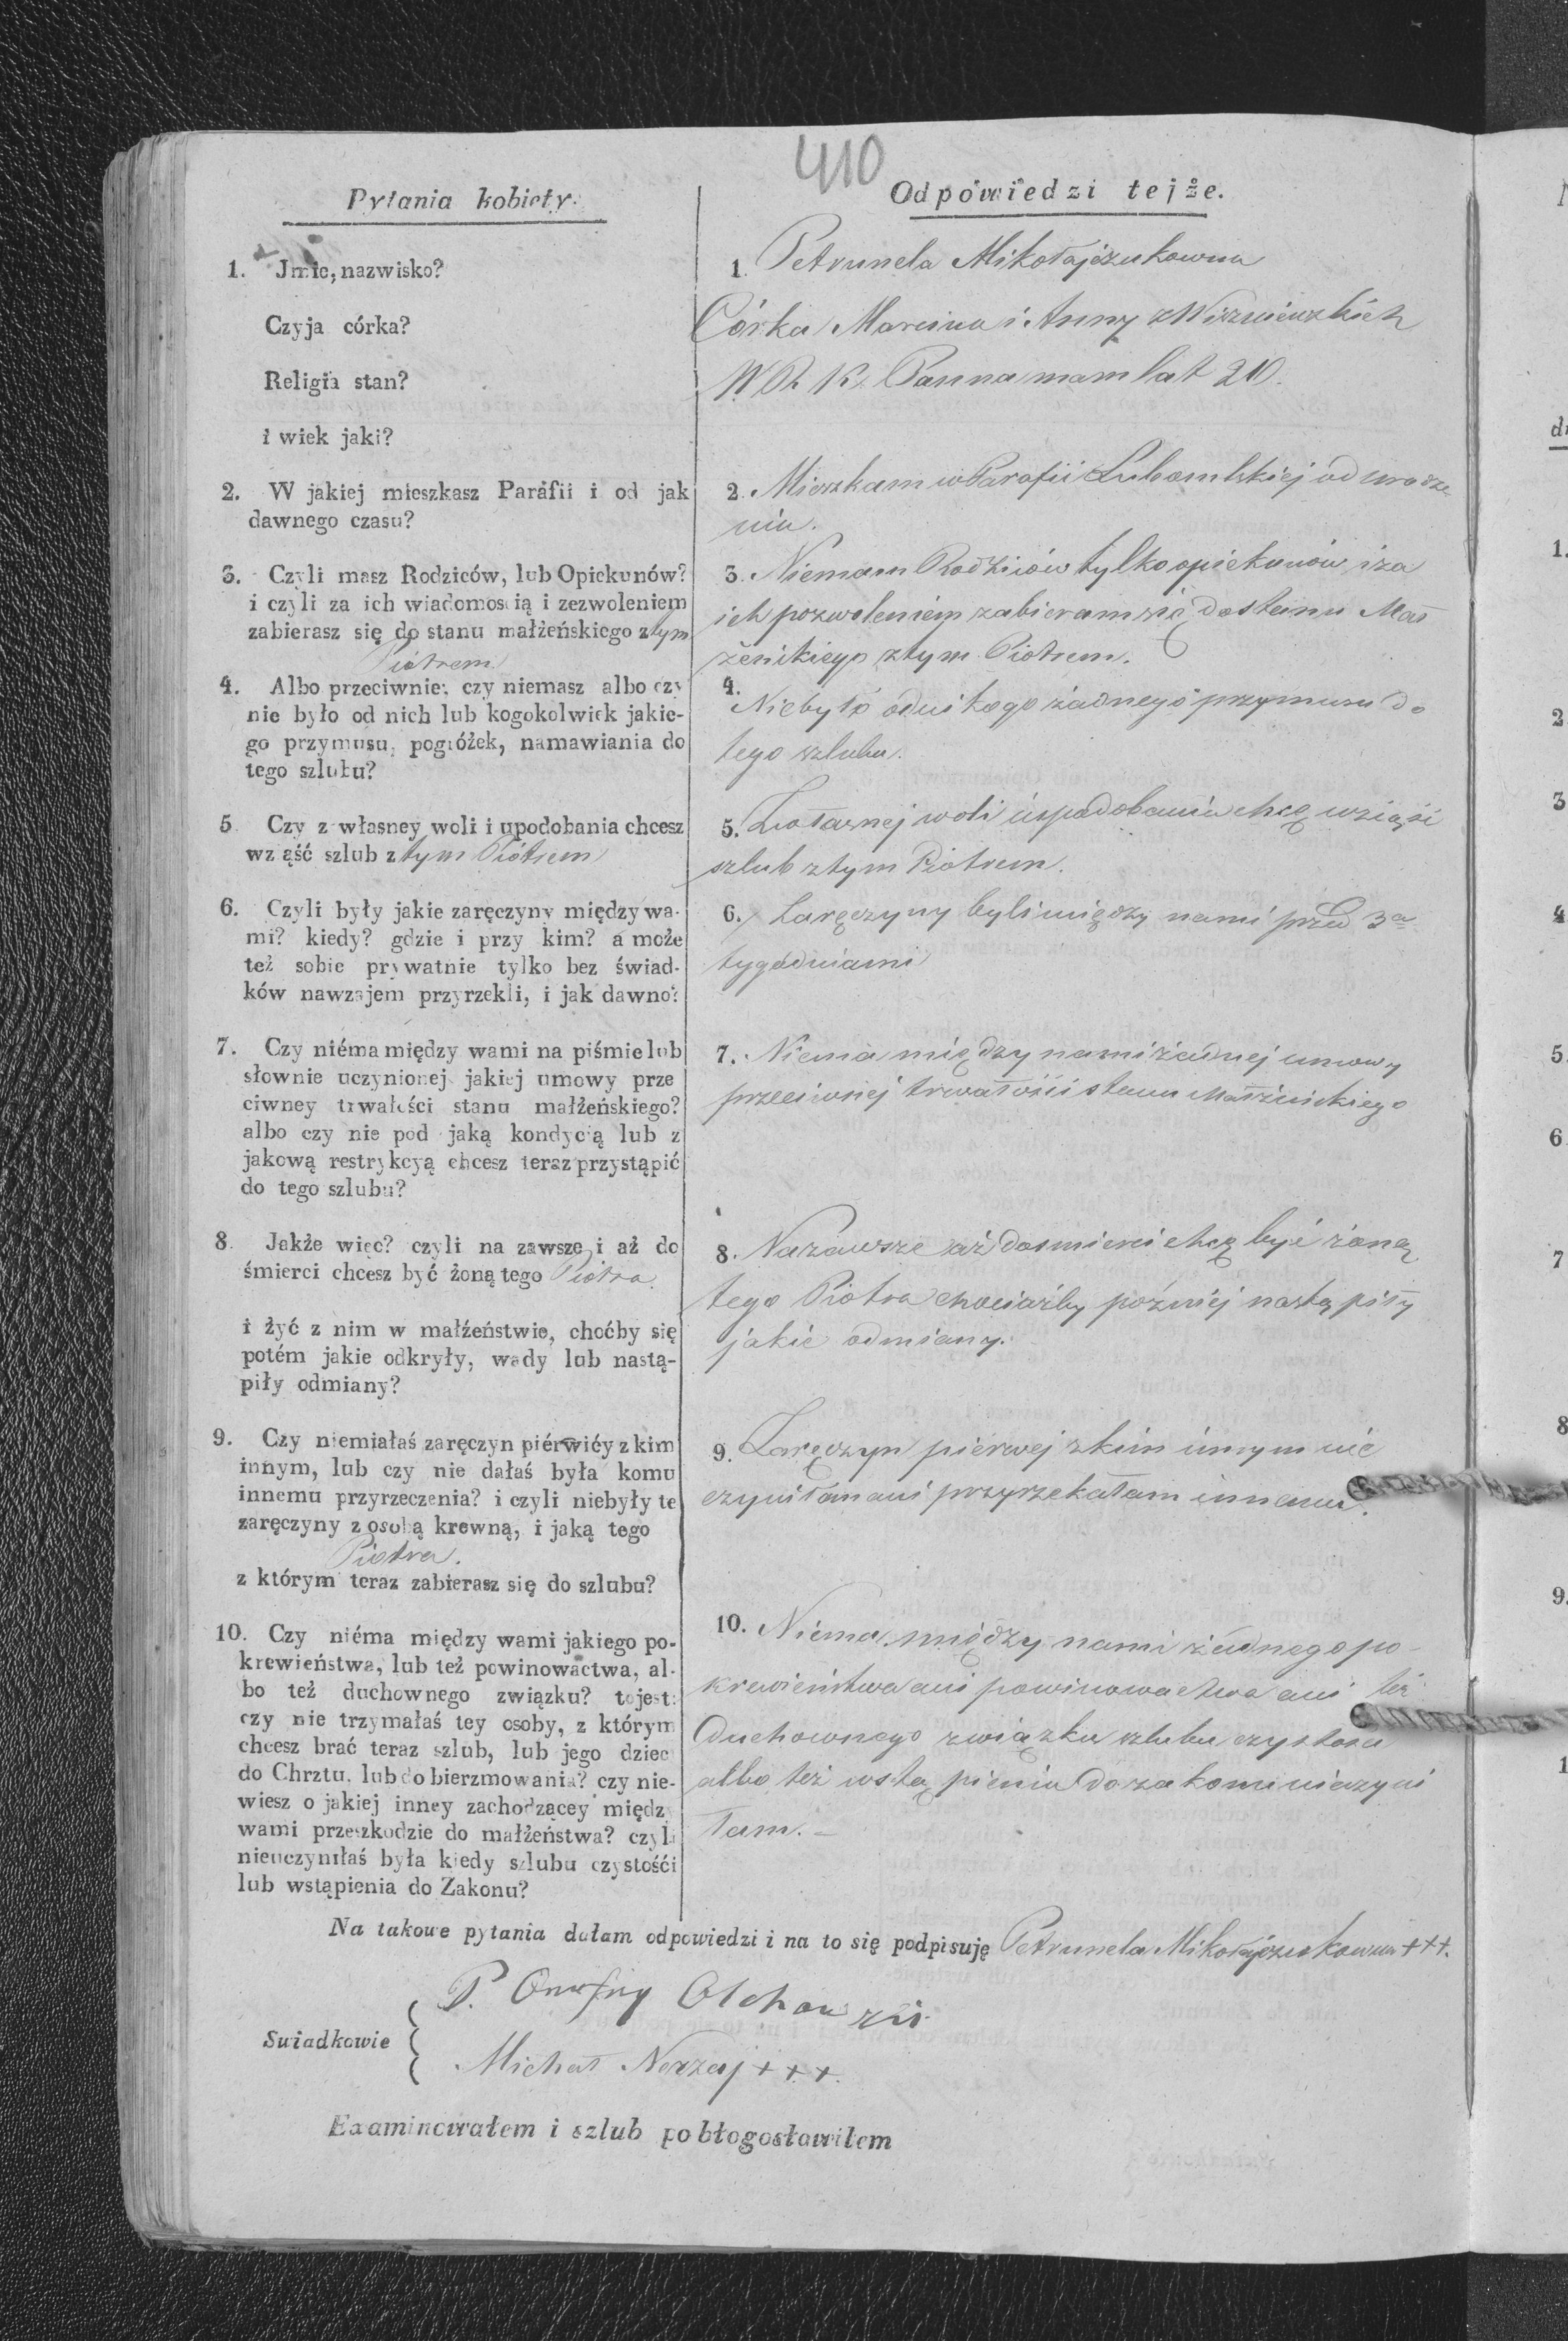 410
Pytania kobiety.
Odpowiedzi tejże.
1. Jmie, nazwisko?
Czyja córka?
Religia stan?
i wiek jaki?
1. Petrunela Mikołajczukowna
Córka Marcina i Anny z
W R K. Panna mam lat 20.
2. W jakiej mieszkasz Parafii i od jak
dawnego czasu?
2. Mieszkam w Parafii Lubomlskiej od urodze
nia.
3. Czyli masz Rodziców, lub Opiekunów?
i czyli za ich wiadomością i zezwoleniem
zabierasz się do stanu małżeńskiego z tym
Piotrem
3. Niemam Rodziców tylko opiekunów, i za
ich pozwoleniem zabieram się do stanu Mał
żenskiego z tym Piotrem.
4. Albo przeciwnie; czy niemasz albo czy
nie było od nich lub kogokolwiek jakie-
go przymusu, pogróżek, namawiania do
tego szlubu?
4. Niebyło od nikogo żadnego przymusu do
tego szlubu.
5. Czy z własney woli i upodobania chcesz
wziąść szlub z tym Piotrem
5. Zwłasnej woli i upodobania chcę wziąść
szlub z tym Piotrem.
6. Czyli były jakie zaręczyny między wa-
mi? kiedy? gdzie i przy kim? a może
też sobie prywatnie tylko bez świad-
ków nawzajem przyrzekli, i jak dawno?
6. Zaręczyny byli między nami przed 3ᵃ
tygodniami
7. Czy niéma między wami na piśmie lub
słownie uczynionej jakiej umowy prze
ciwney trwałości stanu małżeńskiego?
albo czy nie pod jaką kondycią lub z
jakową restrykcyą chcesz teraz przystąpić
do tego szlubu?
7. Niema między nami żadnej umowy
przeciwnej trwałości stanu Małżenskiego
8. Jakże więc? czyli na zawsze i aż do
śmierci chcesz być żoną tego Piotra
i żyć z nim w małżeństwie, choćby się
potém jakie odkryły, wady lub nastą-
piły odmiany?
8. Nazawsze aż do smierci chcę być żoną
tego Piotra chociażby poźniej nastąpiły
jakie odmiany.
9. Czy niemiałaś zaręczyn piérwiéy z kim
innym, lub czy nie dałaś była komu
innemu przyrzeczenia? i czyli niebyły te
zaręczyny z osobą krewną, i jaką tego
Piotra.
z którym teraz zabierasz się do szlubu?
9. Zaręczyn pierwej z kim innym nie
czyniłam ani przyrzekałam innemu.
10. Czy niéma między wami jakiego po-
krewieństwa, lub też powinowactwa, al-
bo też duchownego związku? to jest:
czy nie trzymałaś tey osoby, z którym
chcesz brać teraz szlub, lub jego dzieci
do Chrztu. lub do bierzmowania? czy nie-
wiesz o jakiej inney zachodzącey między
wami przeszkodzie do małżeństwa? czyli
nieuczyniłaś była kiedy szlubu czystośći
lub wstąpienia do Zakonu?
10. Niema między nami żadnego po-
krewieństwa ani powinowactwa ani też
Duchownego związku szlubu czystości
albo też wstąpienia do zakonu nieczyni
łam.
Na takowe pytania dałam odpowiedzi i na to się podpisuję Petrunela Mikołajczukowna +++.
Suiadkowie
P. Onufry Olchowski
Michał +++.
Examinowałem i szlub pobłogosławiłem